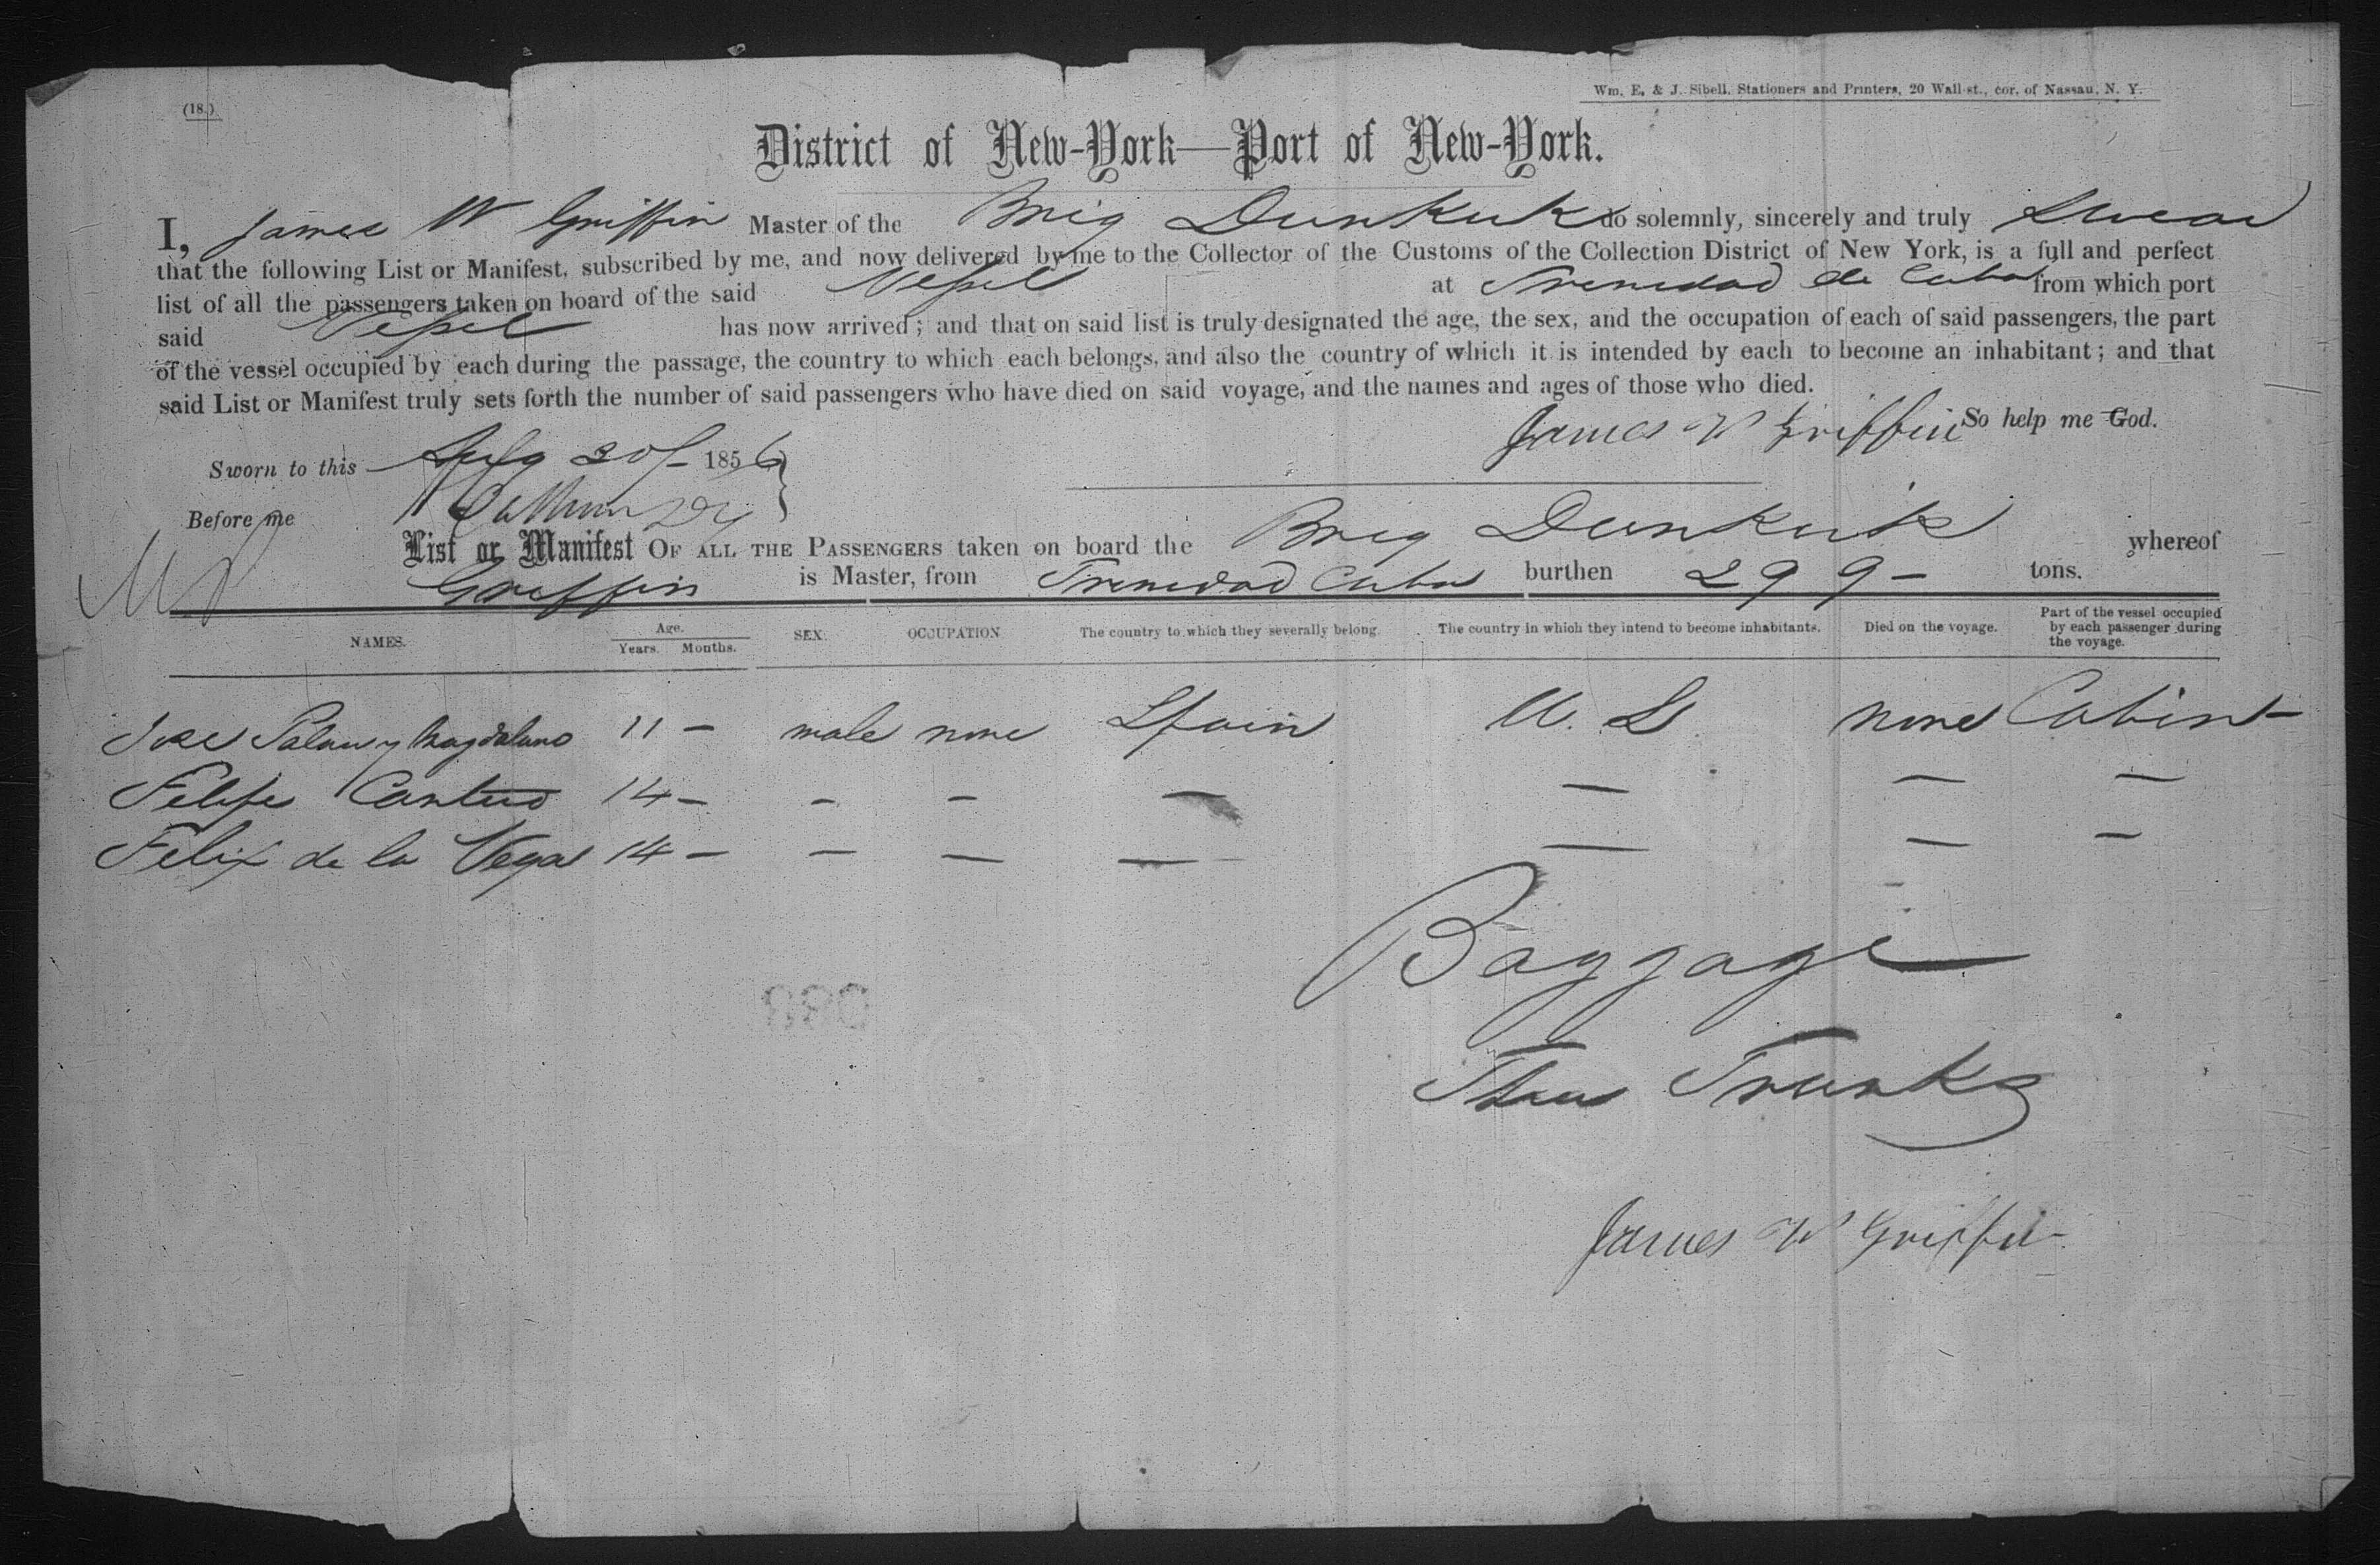 (18.)
Wm. E. & J. Sibell, Stationers and Printers, 20 Wall-st., cor. of Nassau, N. Y.
District of New-York—Port of New-York.
I, James W Griffin Master of the Brig Dunkirk do solemnly, sincerely and truly Swear
that the following List or Manifest, subscribed by me, and now delivered by me to the Collector of the Customs of the Collection District of New York, is a full and perfect
list of all the passengers taken on board of the said Vessel at Trinidad de Cuba from which port
said Vessel has now arrived; and that on said list is truly designated the age, the sex, and the occupation of each of said passengers, the part
of the vessel occupied by each during the passage, the country to which each belongs, and also the country of which it is intended by each to become an inhabitant; and that
said List or Manifest truly sets forth the number of said passengers who have died on said voyage, and the names and ages of those who died.
James W Griffin So help me God.
Sworn to this 1856
Before me
List or Manifest OF ALL THE PASSENGERS taken on board the Brig Dunkirk whereof
Griffin is Master, from Trinidad Cuba burthen 299 — tons.
NAMES. Age. Years. Months. SEX. OCCUPATION The country to which they severally belong. The country in which they intend to become inhabitants. Died on the voyage. Part of the vessel occupied by each passenger during the voyage.
Jose Palau y Magdaleno 11 — male none Spain U. S none Cabin —
Felipe Cantero 14 — — — — — — —
Felix de la Vega 14 — — — — — — —
Baggage
Three Trunks
James W Griffin